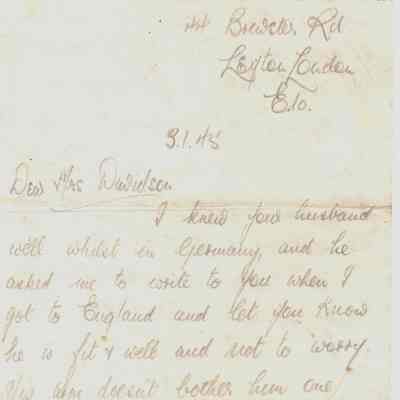 44 Brewster Rd
Leyton London
E.10.
3.1.45
Dear Mrs Davidson
I knew your husband
well whilst in Germany, and he
asked me to write to you when I
got to England and let you know
he is fit & well and not to worry.
His arm doesn't bother him one